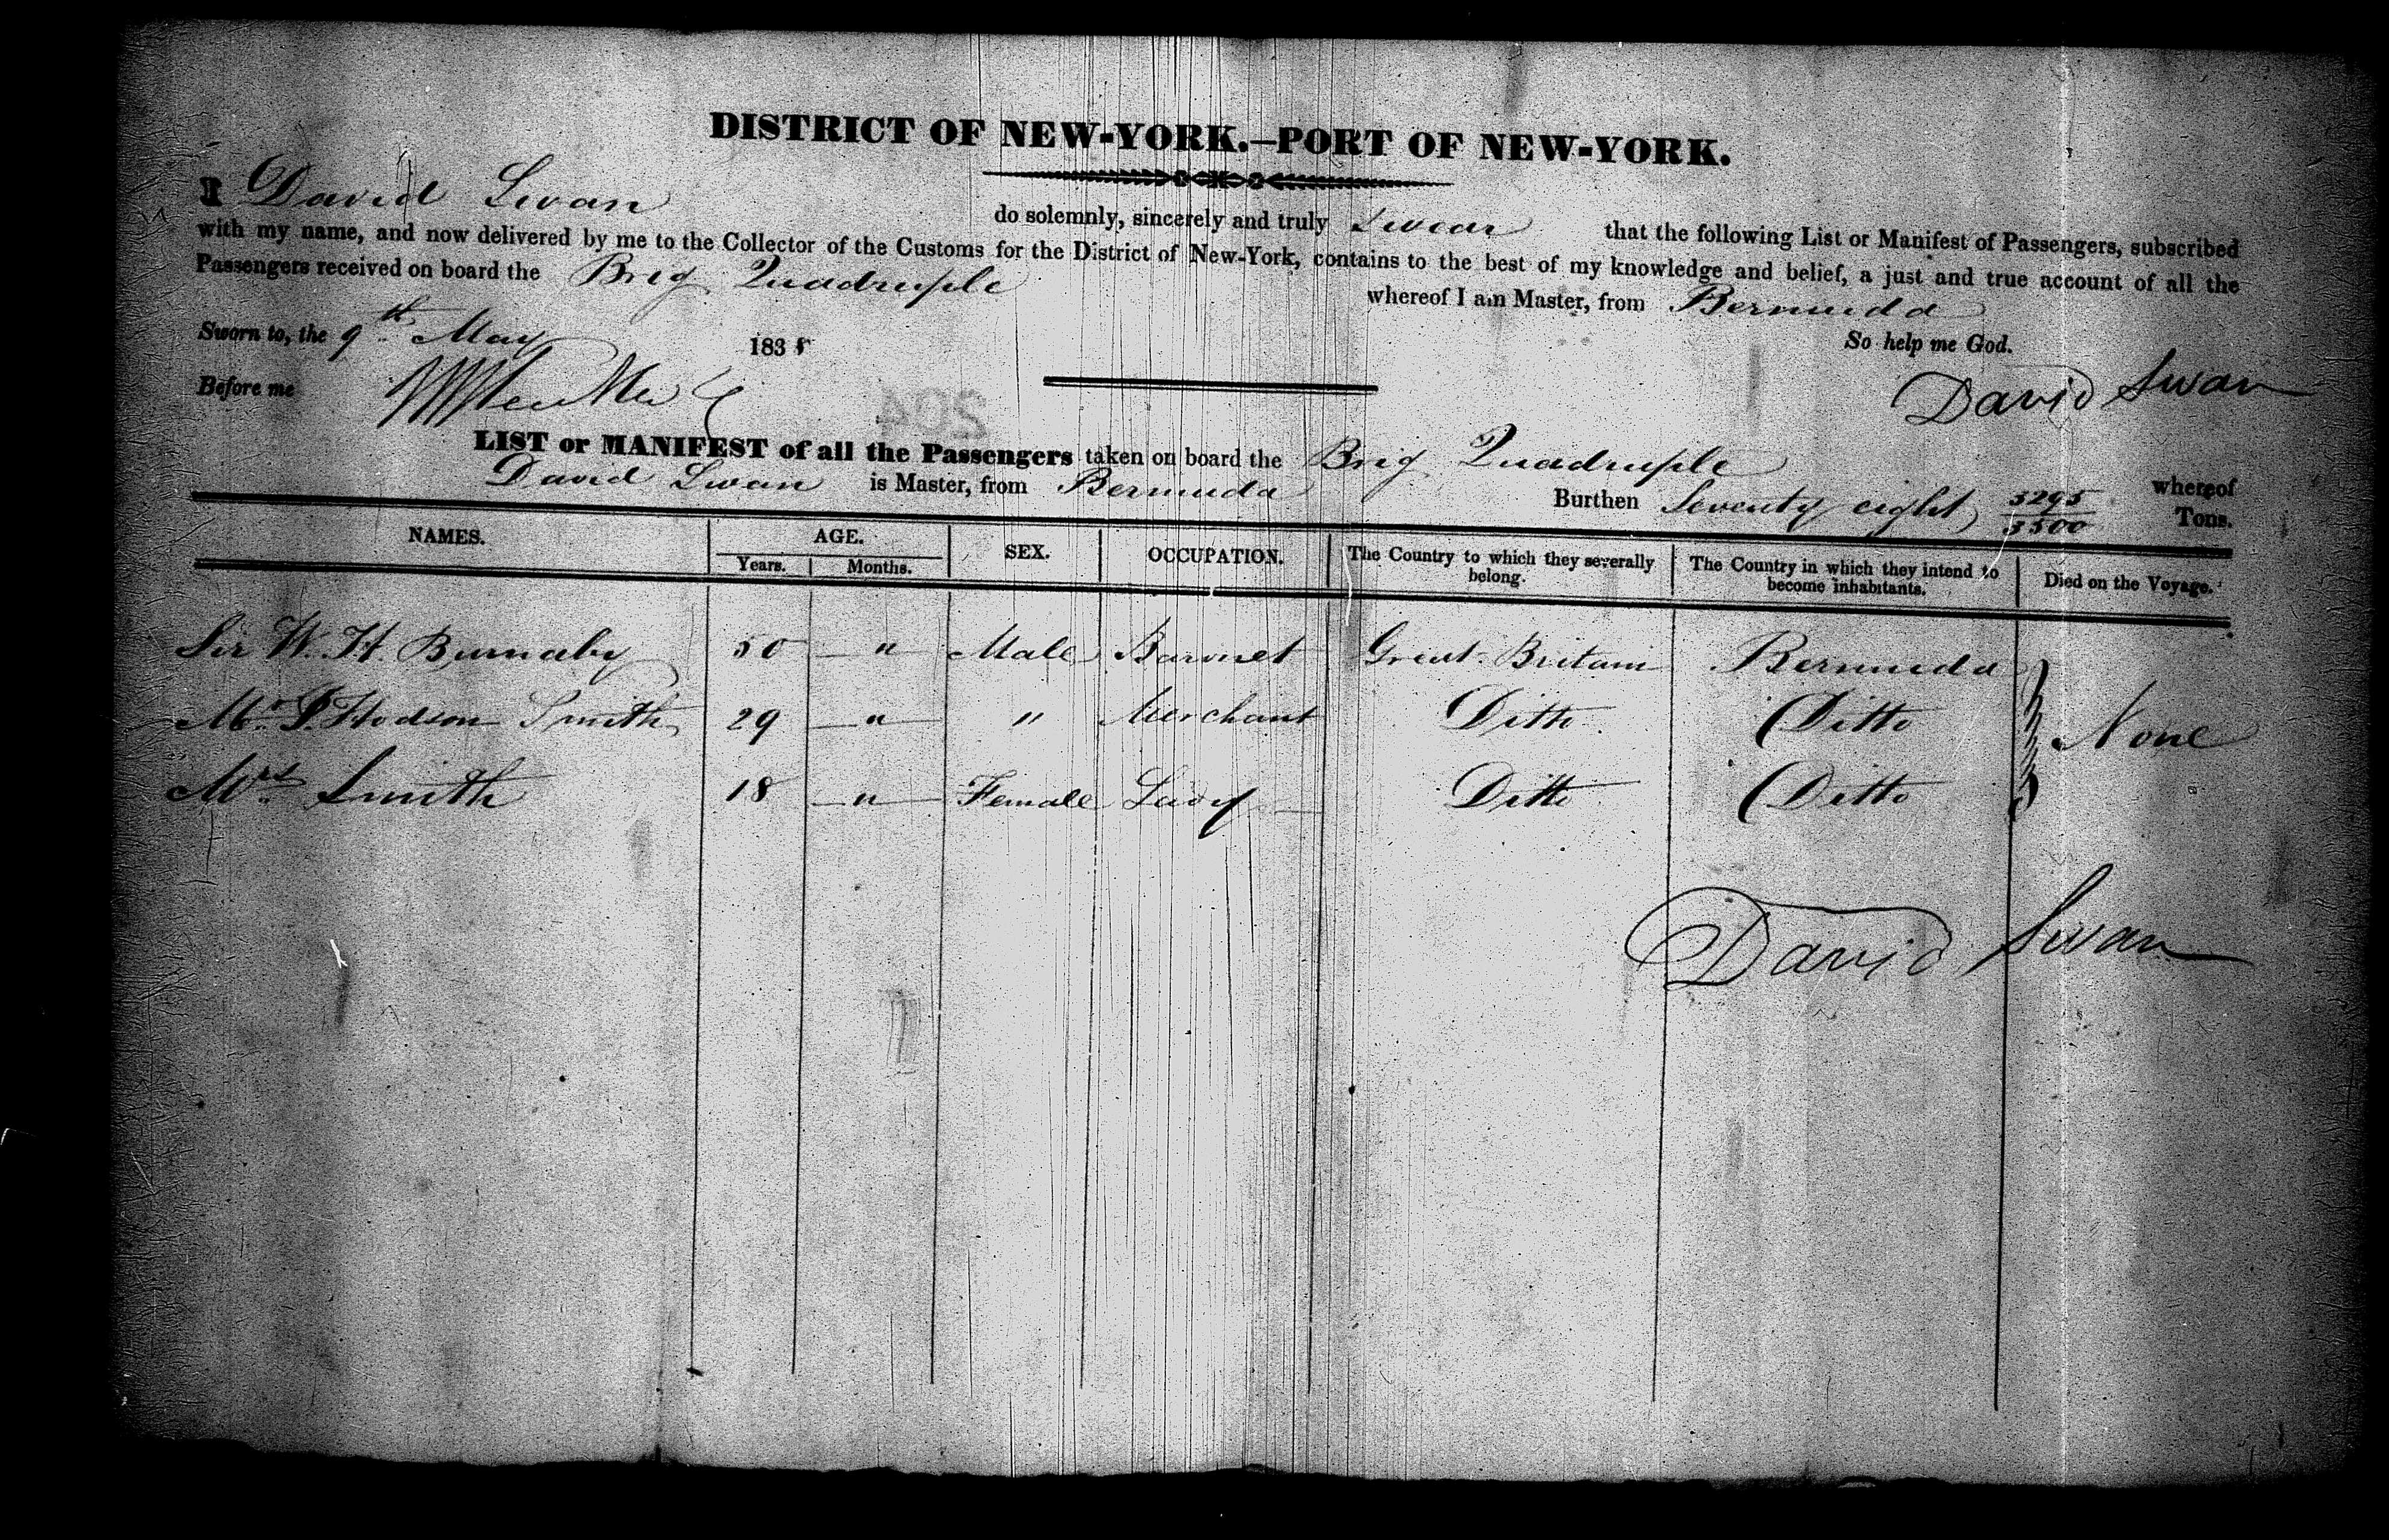 DISTRICT OF NEW-YORK.—PORT OF NEW-YORK.
I David Swan do solemnly, sincerely and truly Swear that the following List or Manifest of Passengers, subscribed
with my name, and now delivered by me to the Collector of the Customs for the District of New-York, contains to the best of my knowledge and belief, a just and true account of all the
Passengers received on board the Brig Quadruple whereof I am Master, from Bermuda
Sworn to, the 9th May 183 So help me God.
Before me David Swan
204
LIST or MANIFEST of all the Passengers taken on board the Brig Quadruple whereof
David Swan is Master, from Bermuda Burthen Seventy eight 3295/3500 Tons.
NAMES. AGE. SEX. OCCUPATION. The Country to which they severally belong. The Country in which they intend to become inhabitants. Died on the Voyage.
Years. Months.
Sir W. H. Burnaby 50 " Male Baronet Great Britain Bermuda
Mr. Hodson Smith 29 " " Merchant Ditto Ditto None
Mrs Smith 18 " Female Lady Ditto Ditto
David Swan